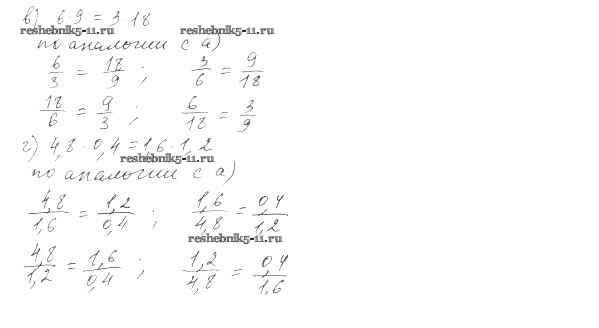 в) 6·9 = 3 18
reshebnik5-11.ru reshebnik5-11.ru
по аналогии с а)
6/3 = 18/9 ; 3/6 = 9/18
18/6 = 9/3 ; 6/18 = 3/9
г) 4,8 · 0,4 = 1,6 · 1,2
reshebnik5-11.ru
по аналогии с а)
4,8/1,6 = 1,2/0,4 ; 1,6/4,8 = 0,4/1,2
reshebnik5-11.ru
4,8/1,2 = 1,6/0,4 ; 1,2/4,8 = 0,4/1,6